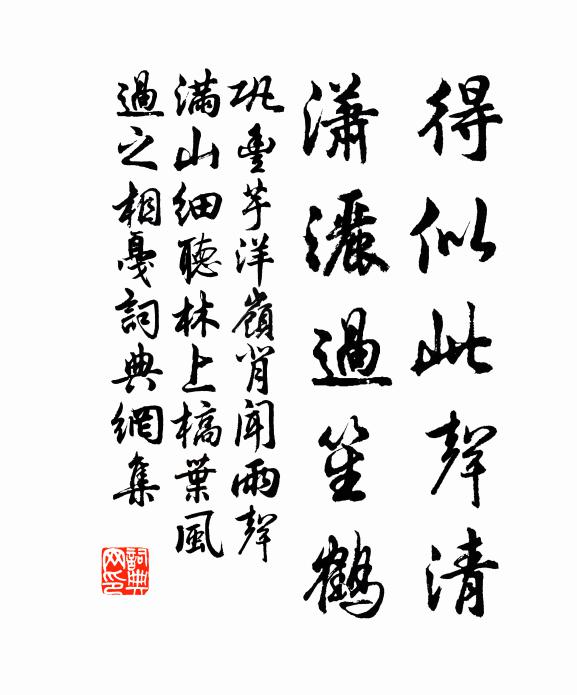 得似此聲清
瀟灑過笙鶴
巩豊芋洋嶺背聞雨聲
滿山細聽林上槁葉風
過之相戛詞典網集
詞典網印